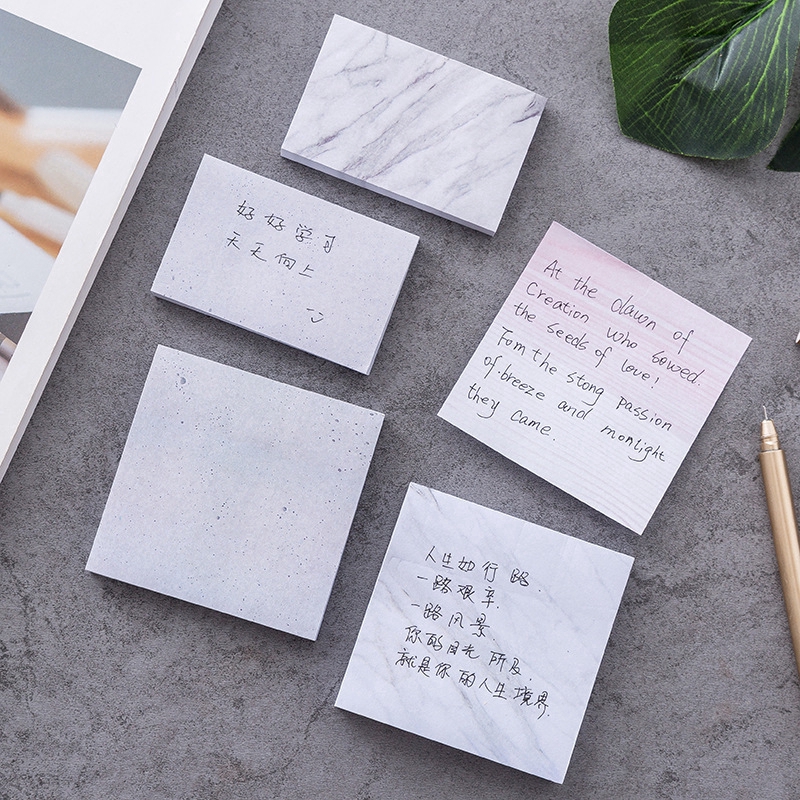 好好学习
天天向上
At the dawn of
Creation who sowed.
the seeds of love!
Fom the stong passion
of.breeze and monlight
they came.
人生如行路.
一路艰辛.
一路风景.
你的目光所及.
就是你的人生境界.